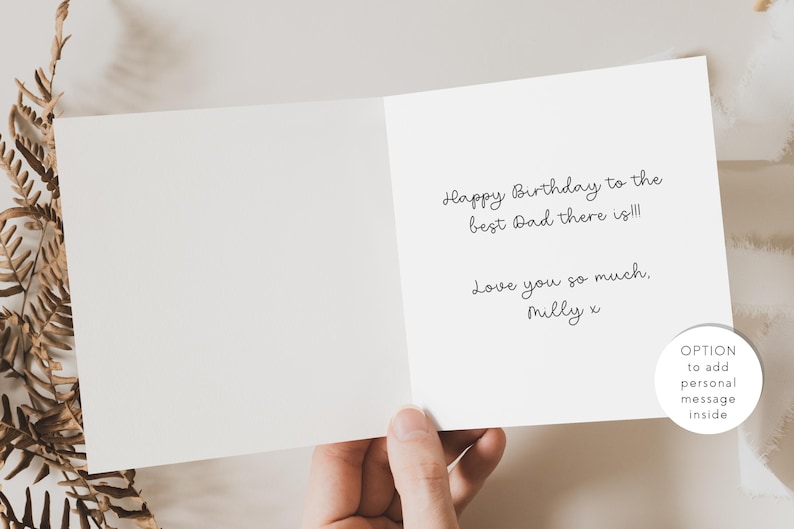 Happy Birthday to the
best Dad there is!!!
Love you so much,
Milly x
OPTION
to add
personal
message
inside